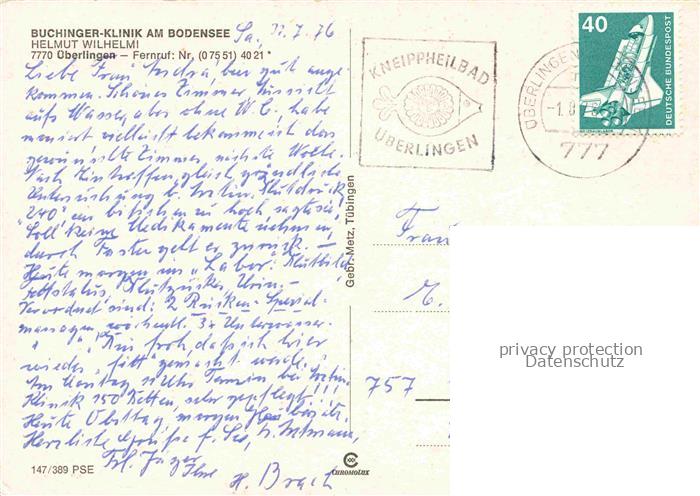 BUCHINGER-KLINIK AM BODENSEE
HELMUT WILHELMI
7770 Überlingen – Fernruf: Nr. (07551) 4021
Sa, 7.76
Liebe Frau bin gut ange-
kommen. Schönes Zimmer, Aussicht
aufs Wasser, aber ohne W.C., habe
vielleicht bekomme ich das
gewünschte Zimmer nächste Woche.
Nach Eintreffen, gleich gründliche
Untersuchung b. Ärztin. Blutdruck
"240" ein bißchen zu hoch, sagte sie!
Soll keine Medikamente nehmen,
durch Fasten geht er zurück. –
Heute morgen ins "Labor": Blutbild,
Blutzucker, Urin. –
Verordnet sind: 2 Rücken-Spezial-
massagen wöchentl. 3x Unterwasser-
" " Bin froh, daß ich hier
wieder "fit" gemacht werde.
Am Montag Termin bei Ärztin.
Klinik 150 Betten, sehr gepflegt!!!
Heute Obsttag, morgen
Herzliche Grüße f. Sie,
Frl. Jäger
Ihre H. Brach
147/389 PSE
CHROMOLUX
Gebr. Metz, Tübingen
KNEIPPHEILBAD
ÜBERLINGEN
ÜBERLINGEN
777
40
DEUTSCHE BUNDESPOST
Frau
757
privacy protection
Datenschutz